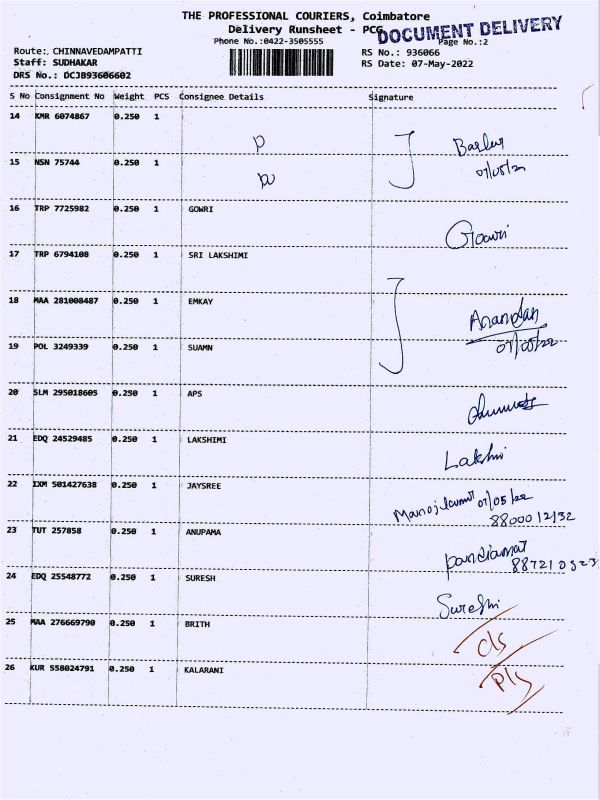 THE PROFESSIONAL COURIERS, Coimbatore
Delivery Runsheet - PCG
DOCUMENT DELIVERY
Phone No.:0422-3505555
Page No.:2
Route: CHINNAVEDAMPATTI
RS No.: 936066
Staff: SUDHAKAR
RS Date: 07-May-2022
DRS No.: DCJB93606602
S No Consignment No Weight PCS Consignee Details Signature
14 KMR 6074867 0.250 1
15 NSN 75744 0.250 1
07/05/22
16 TRP 7725982 0.250 1 GOWRI
Gowri
17 TRP 6794108 0.250 1 SRI LAKSHIMI
18 MAA 281008487 0.250 1 EMKAY
Anandan
19 POL 3249339 0.250 1 SUAMN
07/05/22
20 SLM 295018605 0.250 1 APS
21 EDQ 24529485 0.250 1 LAKSHIMI
Lakshi
22 IXM 501427638 0.250 1 JAYSREE
07/05/22
8800012132
23 TUT 257858 0.250 1 ANUPAMA
24 EDQ 25548772 0.250 1 SURESH
Sureshi
25 MAA 276669790 0.250 1 BRITH
cls
26 KUR 558024791 0.250 1 KALARANI
pls